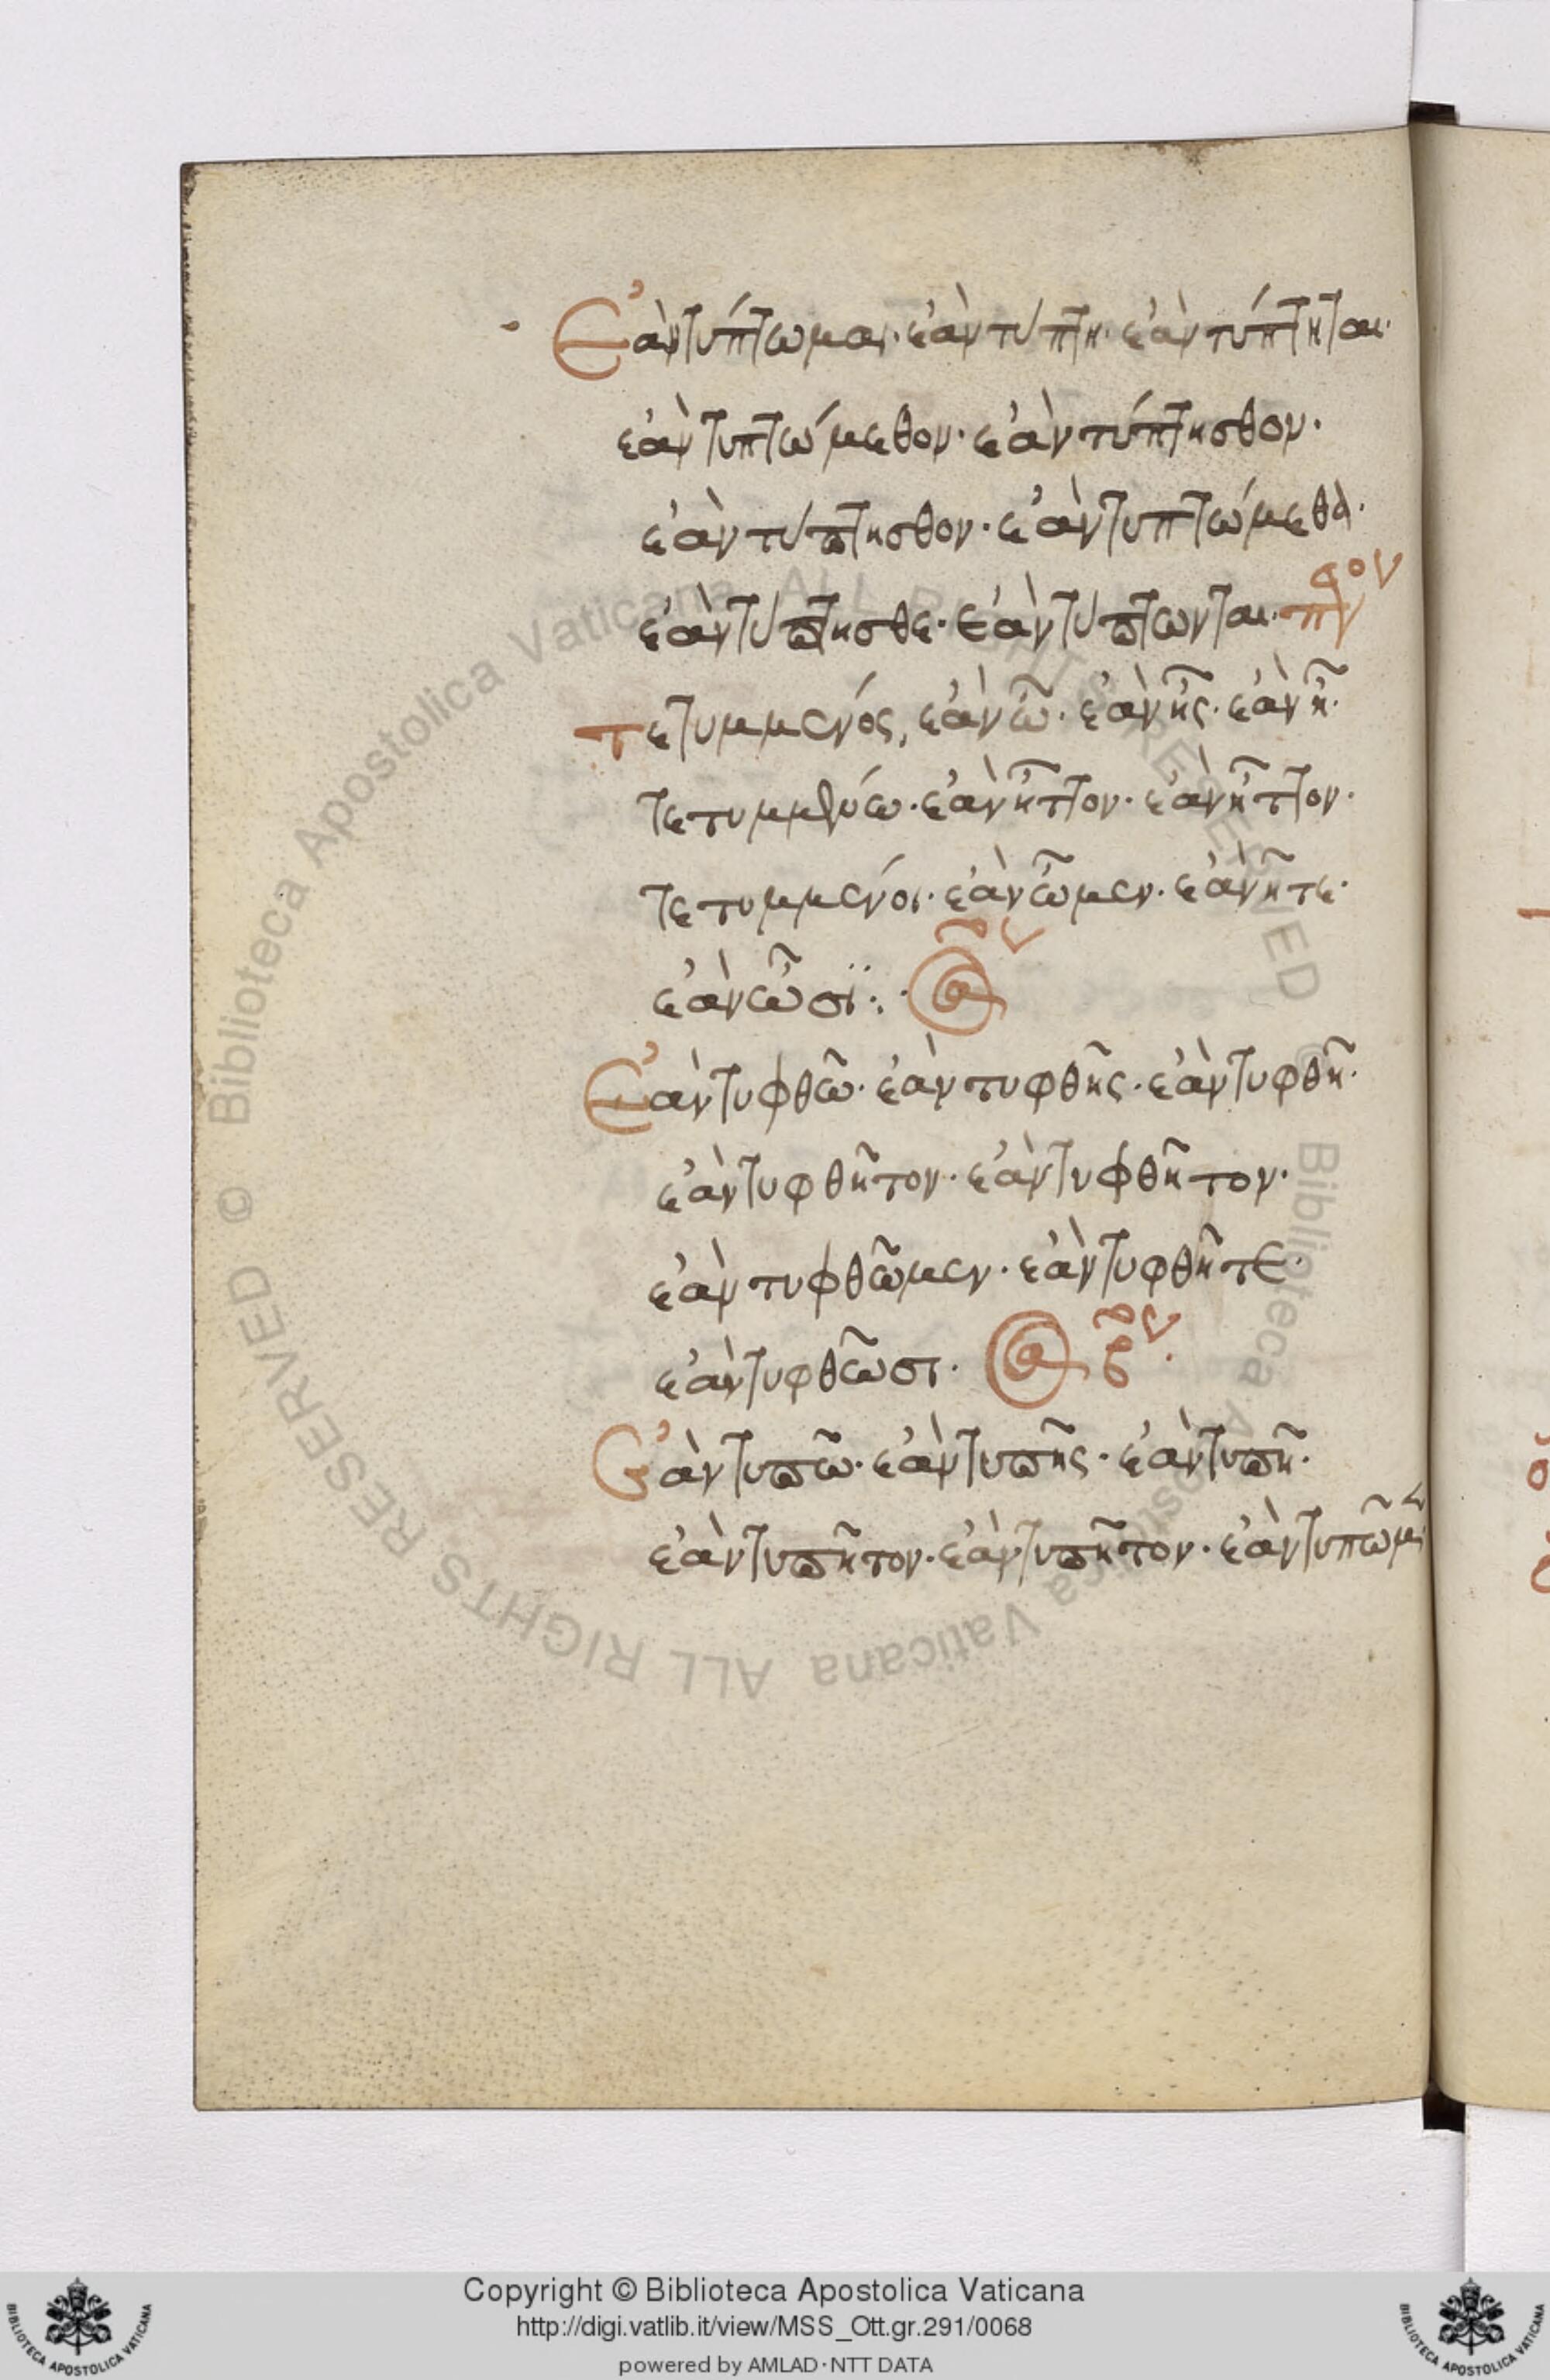 Ἐὰν τύπτωμαι· ἐὰν τύπτη· ἐὰν τύπτηται·
ἐὰν τυπτώμεθον· ἐὰν τύπτησθον·
ἐὰν τύπτησθον· ἐὰν τυπτώμεθα·
ἐὰν τύπτησθε· ἐὰν τύπτωνται·
τετυμμένος, ἐὰν ὦ· ἐὰν ἦς· ἐὰν ἦ·
τετυμμένω· ἐὰν ἦττον· ἐὰν ἦττον·
τετυμμένοι· ἐὰν ὦμεν· ἐὰν ἦτε·
ἐὰν ὦσϊ:·
Ἐὰν τυφθῶ· ἐὰν τυφθῆς· ἐὰν τυφθῆ·
ἐὰν τυφθῆτον· ἐὰν τυφθῆτον·
ἐὰν τυφθῶμεν· ἐὰν τυφθῆτε·
ἐὰν τυφθῶσι·
Ἐὰν τυπῶ· ἐὰν τυπῆς· ἐὰν τυπῆ·
ἐὰν τυπῆτον· ἐὰν τυπῆτον· ἐὰν τυπῶμεν
Copyright © Biblioteca Apostolica Vaticana
http://digi.vatlib.it/view/MSS_Ott.gr.291/0068
powered by AMLAD·NTT DATA
BIBLIOTECA APOSTOLICA VATICANA
BIBLIOTECA APOSTOLICA VATICANA
© Biblioteca Apostolica Vaticana ALL RIGHTS RESERVED
© Biblioteca Apostolica Vaticana ALL RIGHTS RESERVED